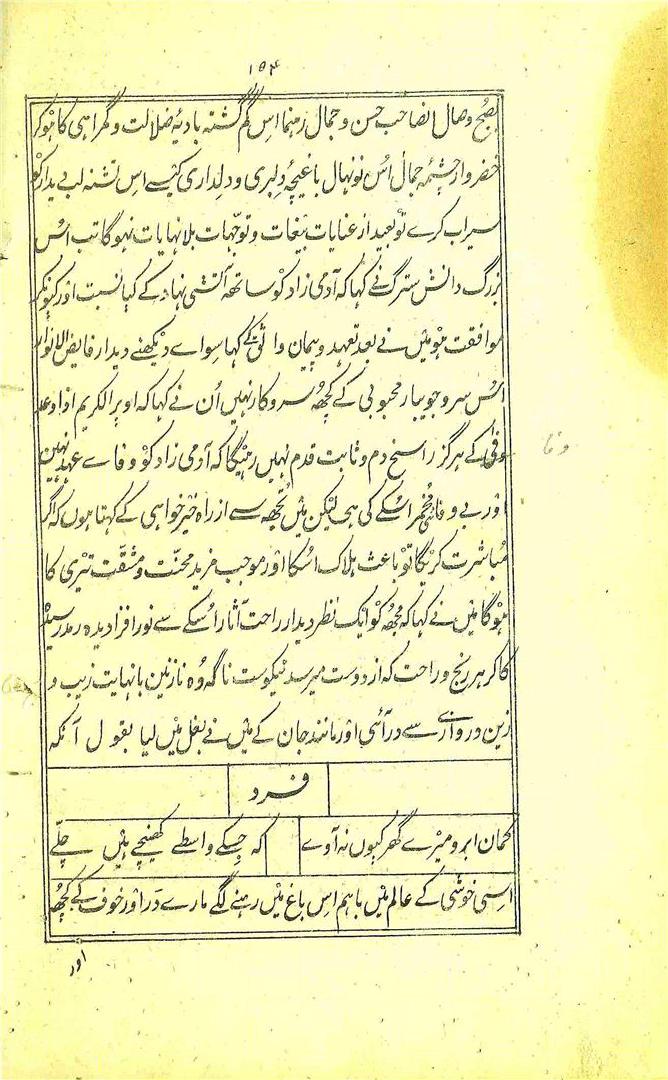 ۱۵۴
بصبح وصال انصاحب حسن و جمال رہنما اس گم گشتہ بادیۂ ضلالت و گمراہی کا ہوکر
خضر وار چشمہ جمال اُس نو نہال باغیچۂ دلبری و دلداری کیسے اس تشنہ لب بیدار کو
سیراب کرے تو بعید از عنایات بیغات و توجہات بلا نہایات نہوگا تب اُس
بزرگ دانش سترگ نے کہا کہ آدمی زاد کو ساتھ آتشی نہاد کے کیا نسبت اور کیونکر
موافقت ہو میں نے بعد تعہد و پیمان واثق کے کہا سواے دیکھنے دیدار فایض الانوار
اُس سرو جویبار محبوبی کے کچھ سروکار نہیں اُن نے کہا کہ اوپر الکریم اذا وعد
وفیٰ کے ہرگز راسخ دم و ثابت قدم نہیں رہیگا کہ آدمی زاد کو وفاے عہد نہین
اور بے وفائی مخمر اسکے کی ہی لیکن میں تجھ سے از راہ خیر خواہی کے کہتا ہوں کہ اگر
مباشرت کریگا تو باعث ہلاک اسکا اور موجب مزید محنت و مشقت تیری کا
ہوگا میں نے کہا کہ مجھ کو ایک نظر دیدار راحت آثار اُسکے سے نور افزا دیدہ رمد رسیدہ
کا کر ہر رنج و راحت کہ از دوست میرسد نیکوست ناگہ وُہ نازنین بانہایت زیب و
زین دروازے سے در آئی اور مانند جان کے میں نے بغل میں لیا بقول آنکہ
فرد
کمان ابرو میرے گھر کیوں نہ آوے کہ جسکے واسطے کھینچے ہیں چلّے
اسی خوشی کے عالم میں باہم اس باغ میں رہنے لگے مارے ڈر اور خوف کے کچھ
اور
وفا